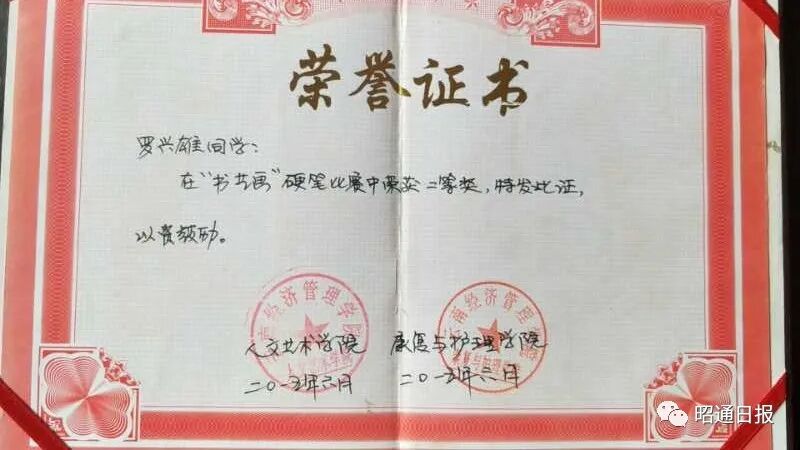 荣誉证书
罗兴雄同学：
在“书艺画”硬笔比展中荣获二等奖，特发此证，
以资鼓励。
经济管理学院
南经济管理
人文艺术学院 康复与护理学院
二〇一五年六月 二〇一五年六月
昭通日报